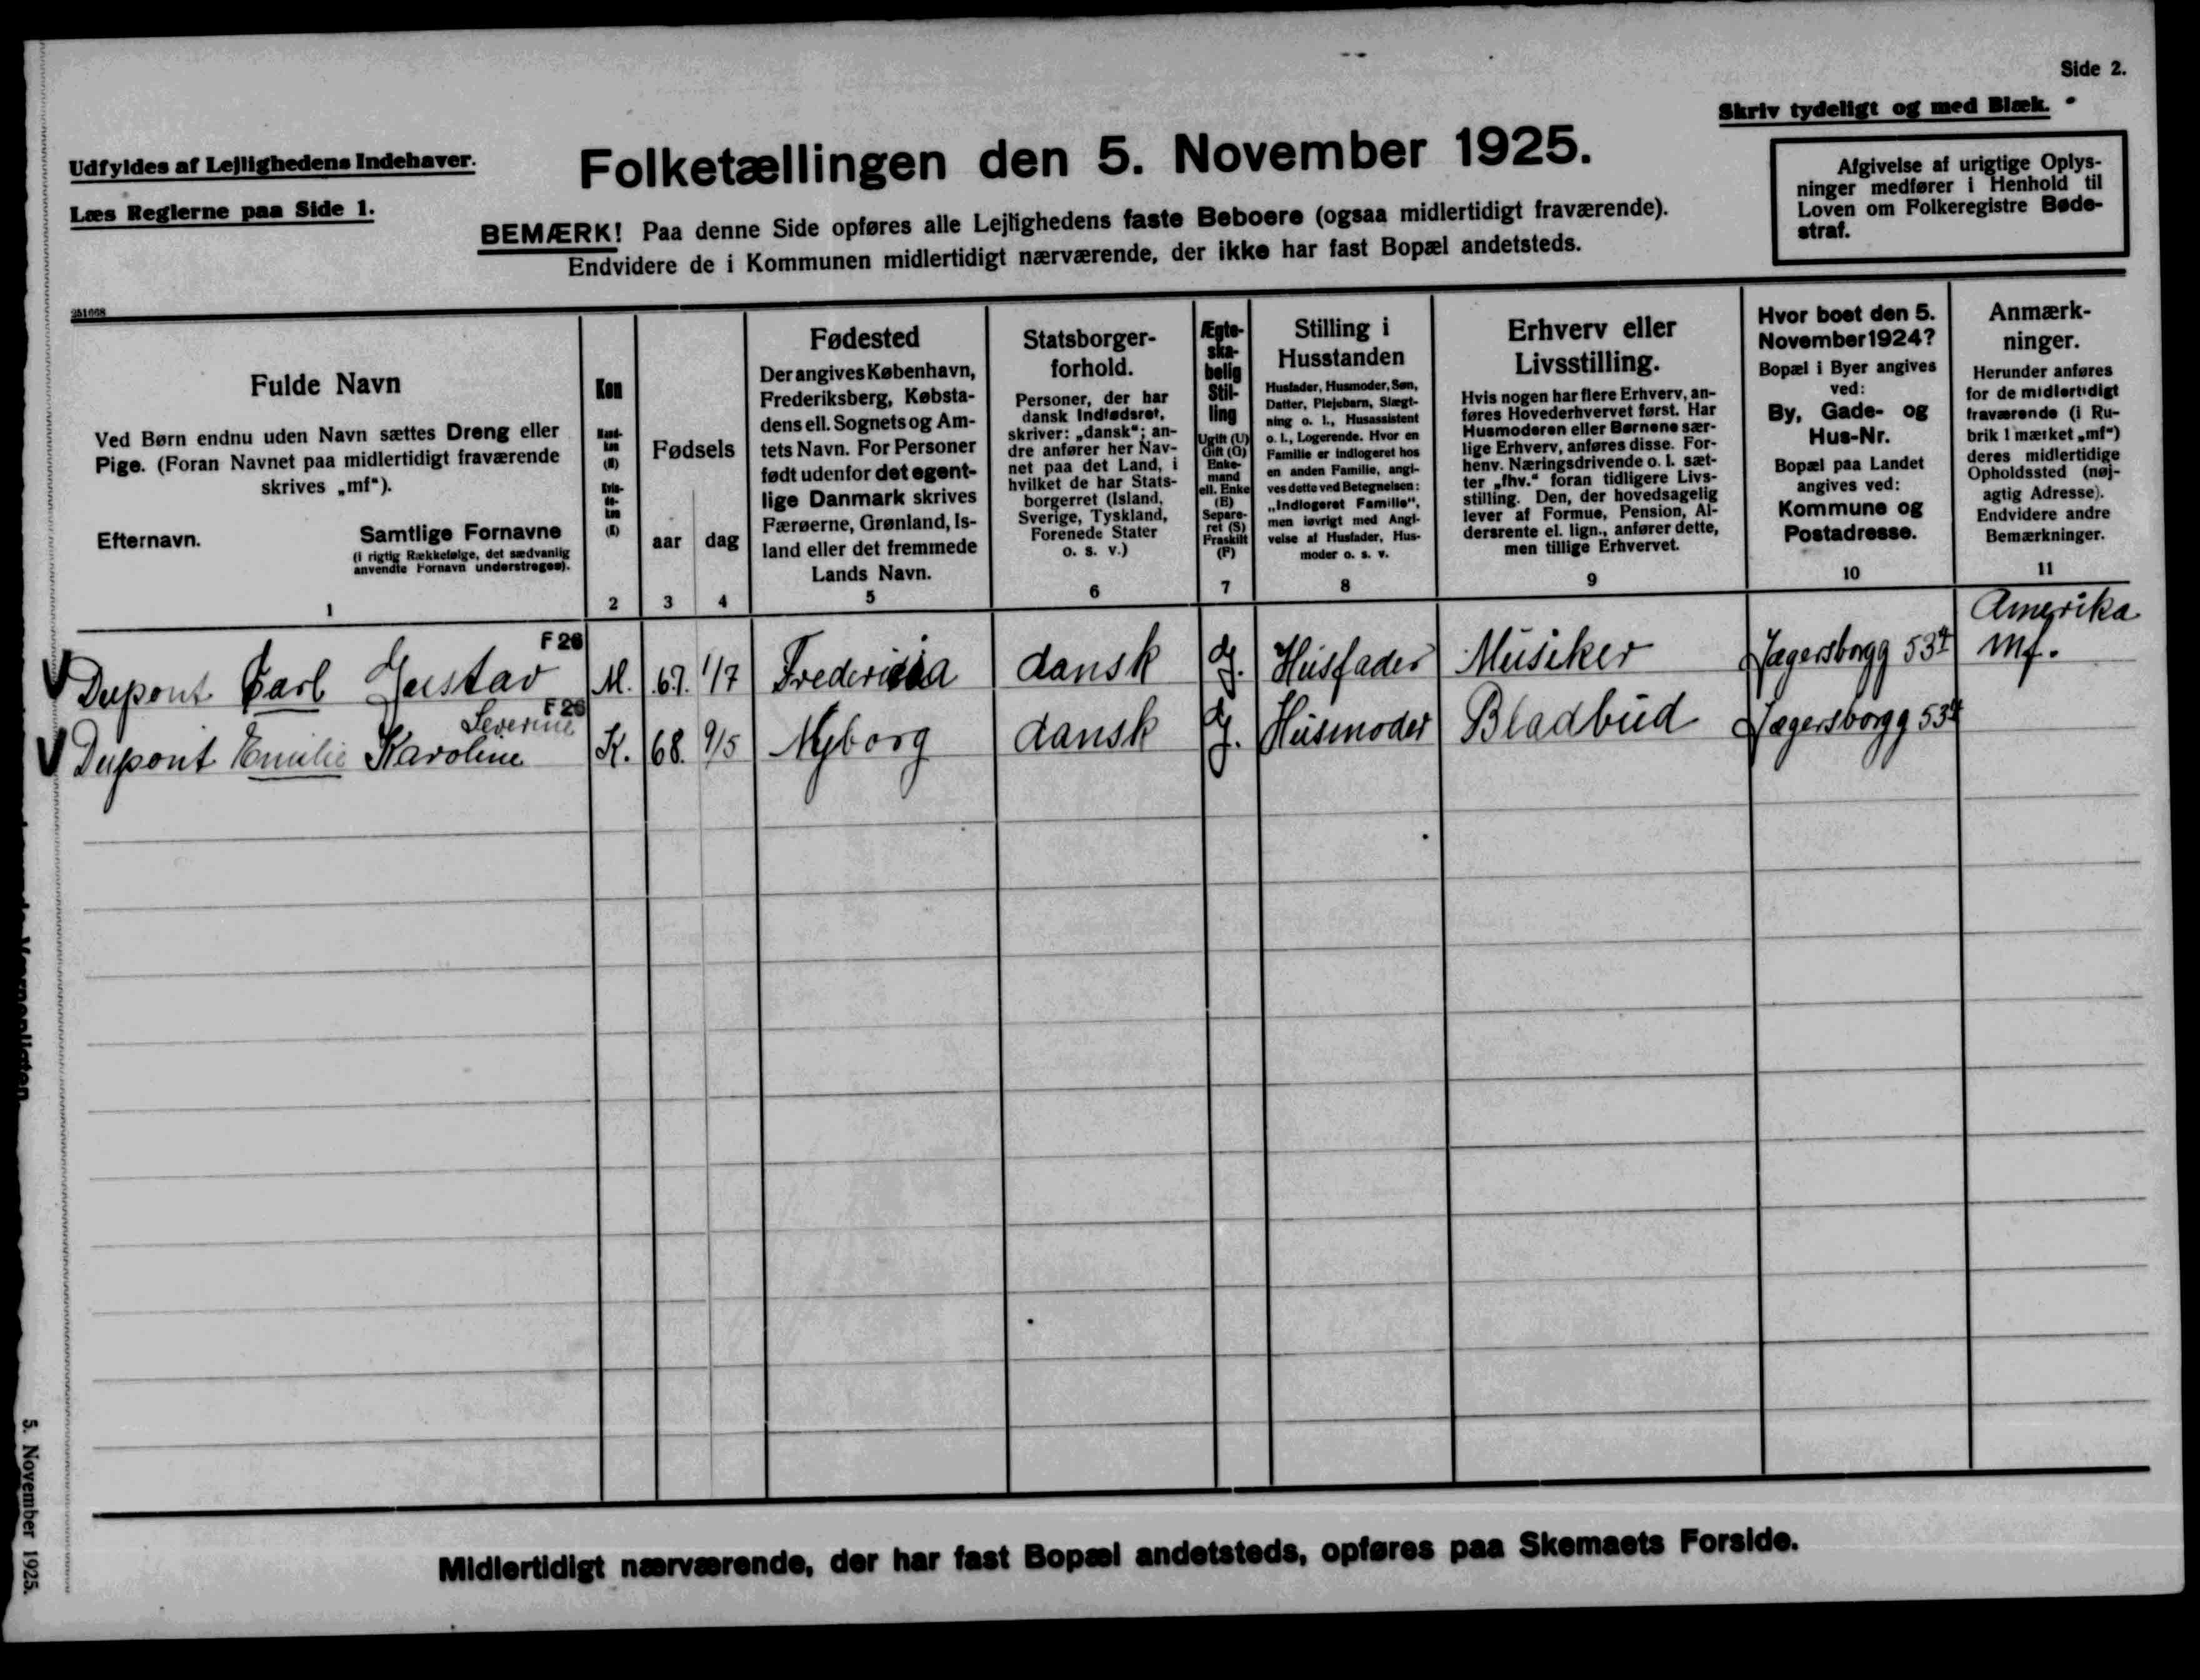 Side 2.
Skriv tydeligt og med Blæk.
Udfyldes af Lejlighedens Indehaver.
Læs Reglerne paa Side 1.
Folketællingen den 5. November 1925.
BEMÆRK! Paa denne Side opføres alle Lejlighedens faste Beboere (ogsaa midlertidigt fraværende).
Endvidere de i Kommunen midlertidigt nærværende, der ikke har fast Bopæl andetsteds.
Afgivelse af urigtige Oplys-
ninger medfører i Henhold til
Loven om Folkeregistre Bøde-
straf.
251668
Fulde Navn
Ved Børn endnu uden Navn sættes Dreng eller
Pige. (Foran Navnet paa midlertidigt fraværende
skrives „mf“).
Efternavn.
Samtlige Fornavne
(i rigtig Rækkefølge, det sædvanlig
anvendte Fornavn understreges).
1
Køn
Mand-
køn
(M)
Kvin-
de-
køn
(K)
2
Fødsels
aar dag
3 4
Fødested
Der angives København,
Frederiksberg, Købsta-
dens ell. Sognets og Am-
tets Navn. For Personer
født udenfor det egent-
lige Danmark skrives
Færøerne, Grønland, Is-
land eller det fremmede
Lands Navn.
5
Statsborger-
forhold.
Personer, der har
dansk Indfødsret,
skriver: „dansk“; an-
dre anfører her Nav-
net paa det Land, i
hvilket de har Stats-
borgerret (Island,
Sverige, Tyskland,
Forenede Stater
o. s. v.)
6
Ægte-
ska-
belig
Stil-
ling
Ugift (U)
Gift (G)
Enke-
mand
ell. Enke
(E)
Separe-
ret (S)
Fraskilt
(F)
7
Stilling i
Husstanden
Husfader, Husmoder, Søn,
Datter, Plejebarn, Slægt-
ning o. l., Husassistent
o. l., Logerende. Hvor en
Familie er indlogeret hos
en anden Familie, angi-
ves dette ved Betegnelsen:
„Indlogeret Familie“,
men løvrigt med Angi-
velse af Husfader, Hus-
moder o. s. v.
8
Erhverv eller
Livsstilling.
Hvis nogen har flere Erhverv, an-
føres Hovederhvervet først. Har
Husmoderen eller Børnene sær-
lige Erhverv, anføres disse. For-
henv. Næringsdrivende o. l. sæt-
ter „fhv.“ foran tidligere Livs-
stilling. Den, der hovedsagelig
lever af Formue, Pension, Al-
dersrente el. lign., anfører dette,
men tillige Erhvervet.
9
Hvor boet den 5.
November 1924?
Bopæl i Byer angives
ved:
By, Gade- og
Hus-Nr.
Bopæl paa Landet
angives ved:
Kommune og
Postadresse.
10
Anmærk-
ninger.
Herunder anføres
for de midlertidigt
fraværende (i Ru-
brik 1 mærket „mf“)
deres midlertidige
Opholdssted (nøj-
agtig Adresse).
Endvidere andre
Bemærkninger.
11
F 26
Dupont Carl Gustav M. 67. 1/7 Fredericia dansk g. Husfader Musiker Jægersborgg 53 4 Amerika mf.
F 26
Dupont Emilie Severine Karoline K. 68. 9/5 Nyborg dansk g. Husmoder Bladbud Jægersborgg 53 4
Midlertidigt nærværende, der har fast Bopæl andetsteds, opføres paa Skemaets Forside.
5. November 1925.